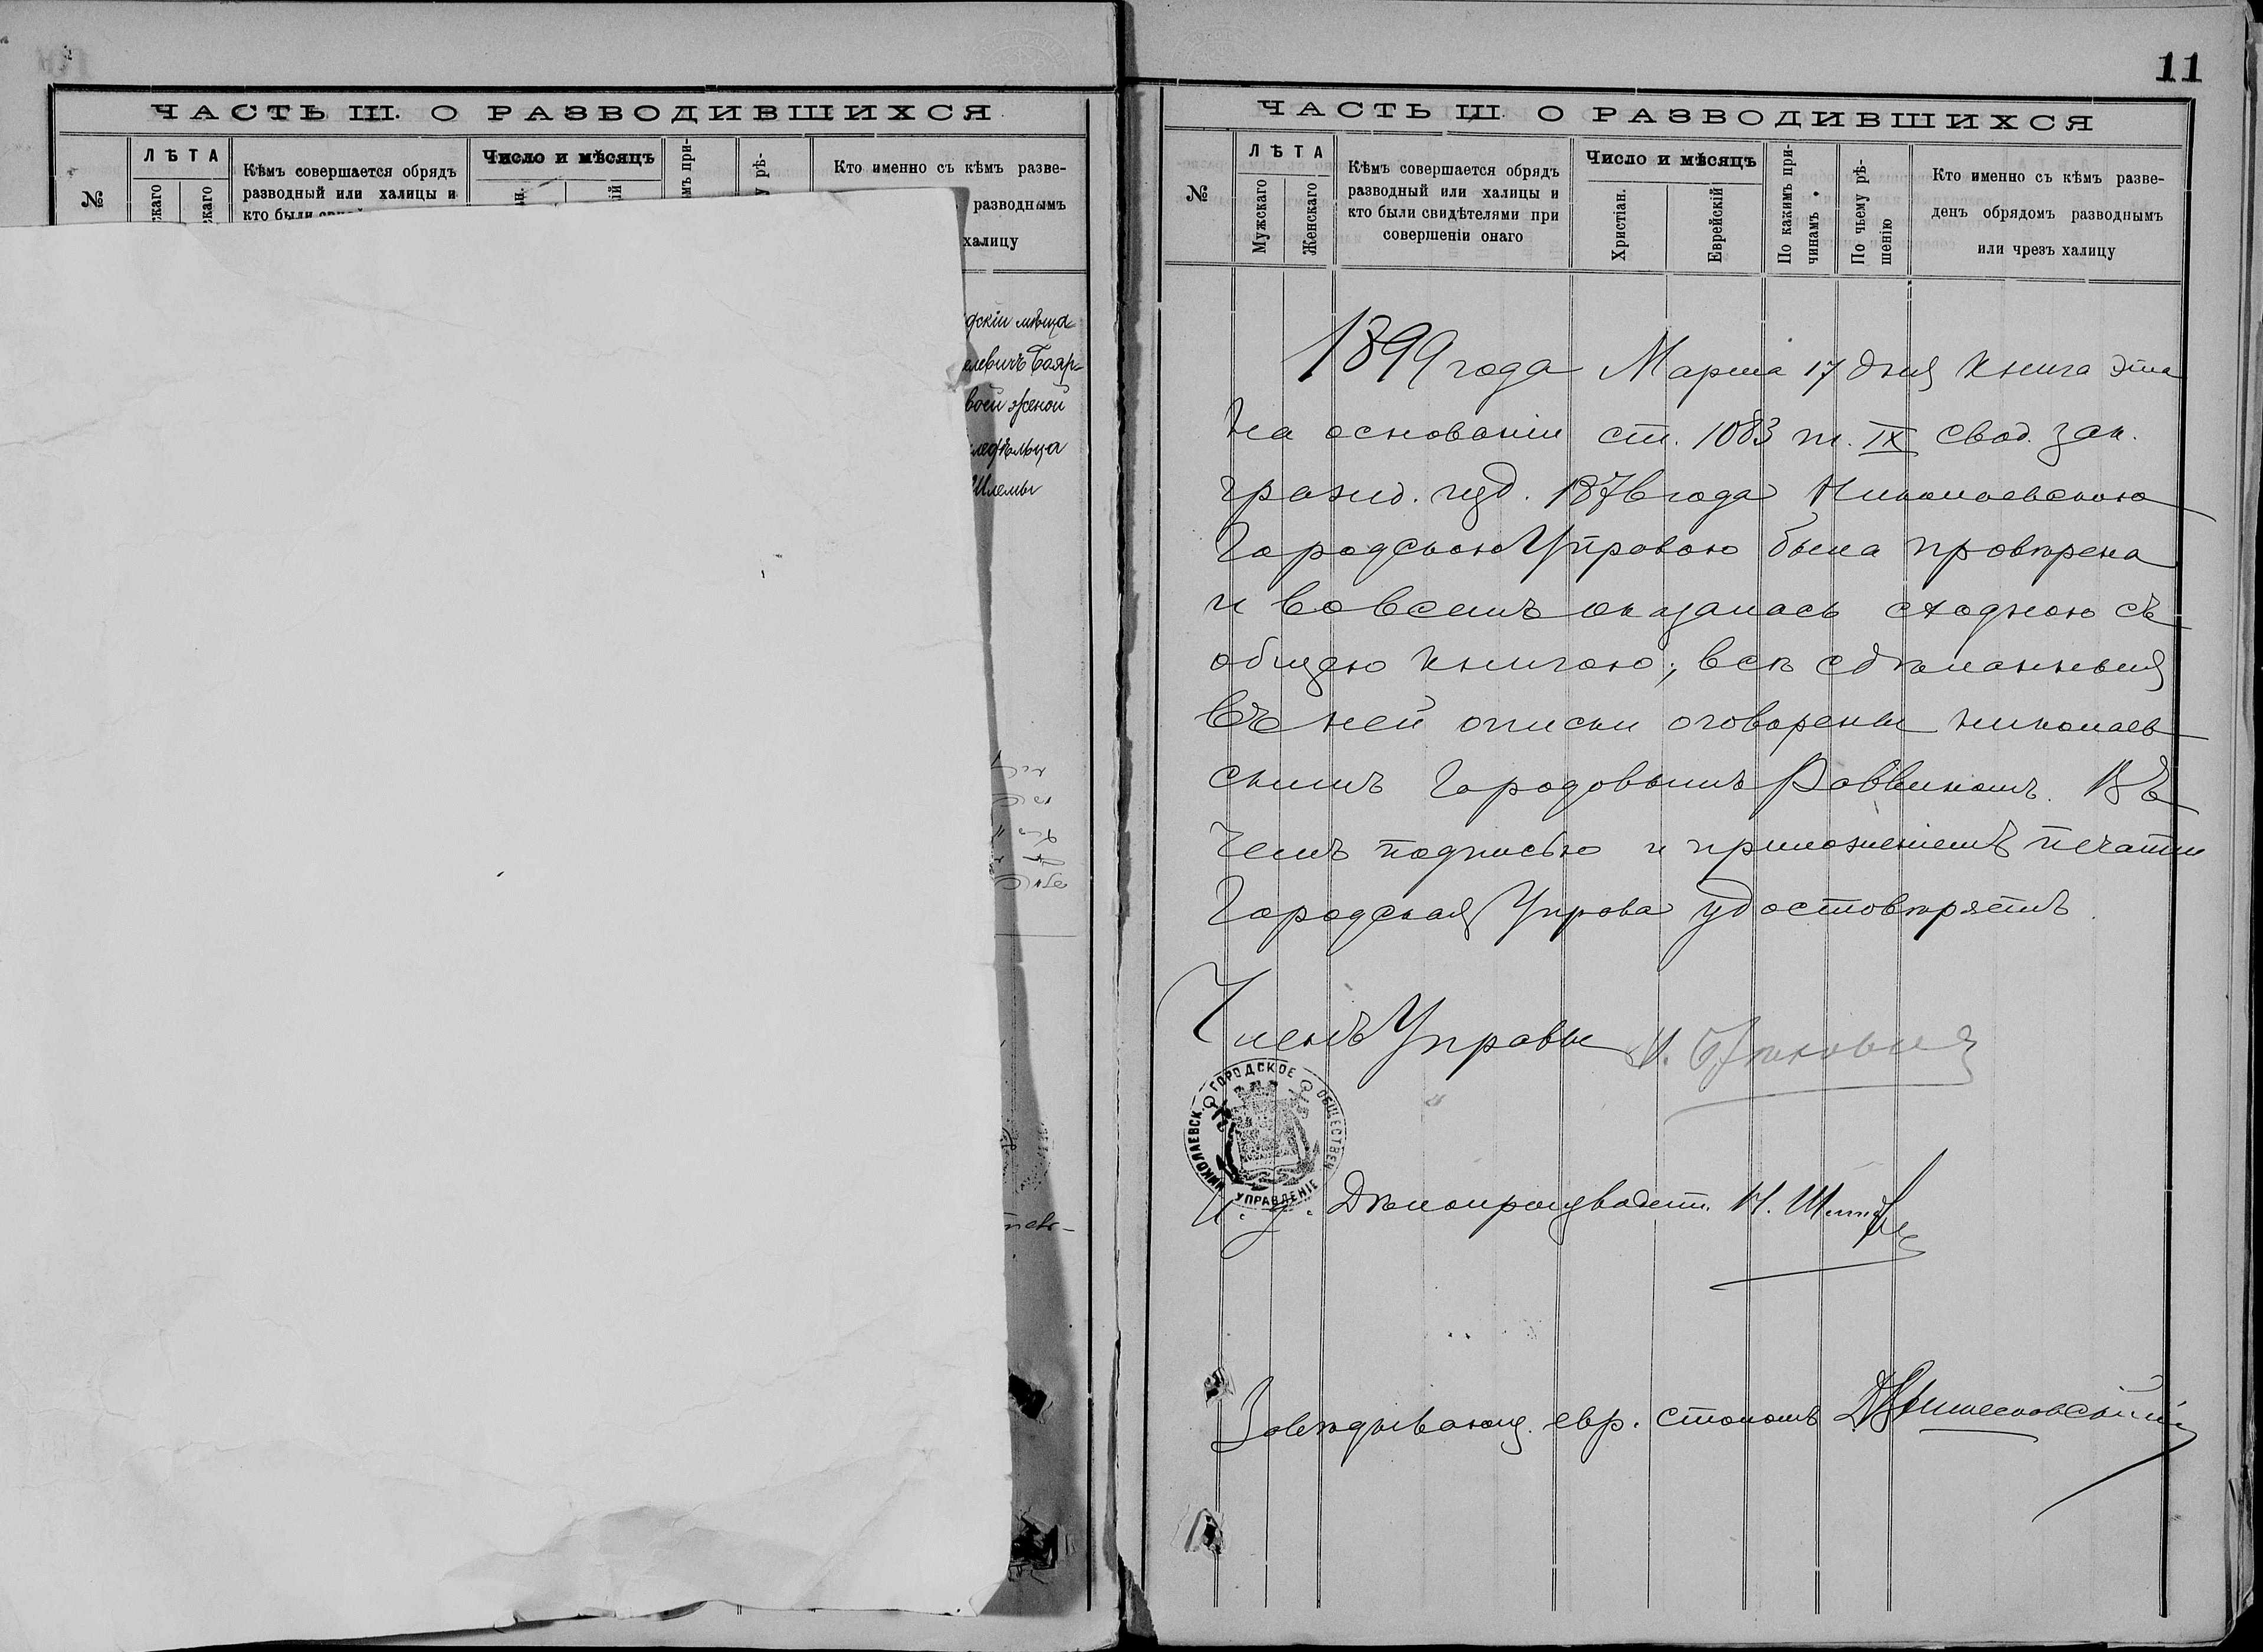 ЧАСТЬ III. О РАЗВОДИВШИХСЯ.
№
ЛѢТА
скаго
скаго
Кѣмъ совершается обрядъ
разводный или халицы и
кто были
Число и мѣсяцъ
Кто именно съ кѣмъ разве-
разводнымъ
халицу
воей женой
Шлемы
11
ЧАСТЬ III. О РАЗВОДИВШИХСЯ
№
ЛѢТА
Мужскаго
Женскаго
Кѣмъ совершается обрядъ
разводный или халицы и
кто были свидѣтелями при
совершеніи онаго
Число и мѣсяцъ
Христіан.
Еврейскій
По какимъ при-
чинамъ
По чьему рѣ-
шенію
Кто именно съ кѣмъ разве-
денъ обрядомъ разводнымъ
или чрезъ халицу
1899 года Марта 17 дня книга эта
на основаніи ст. 1083 т. IX свод. зак.
гражд. изд. 1876 года Николаевскою
Городскою Управою была провѣрена
и во всемъ оказалась сходною съ
общею книгою; всѣ сдѣланныя
въ ней описки оговорены николаев
скимъ Городовымъ Раввиномъ. Въ
чемъ подписью и приложеніемъ печати
Городская Управа удостовѣряетъ.
Членъ Управы
НИКОЛАЕВСК. ГОРОДСКОЕ ОБЩЕСТВЕН. УПРАВЛЕНІЕ
И. д. Дѣлопроизводит. И.
Завѣдывающ. евр. столомъ